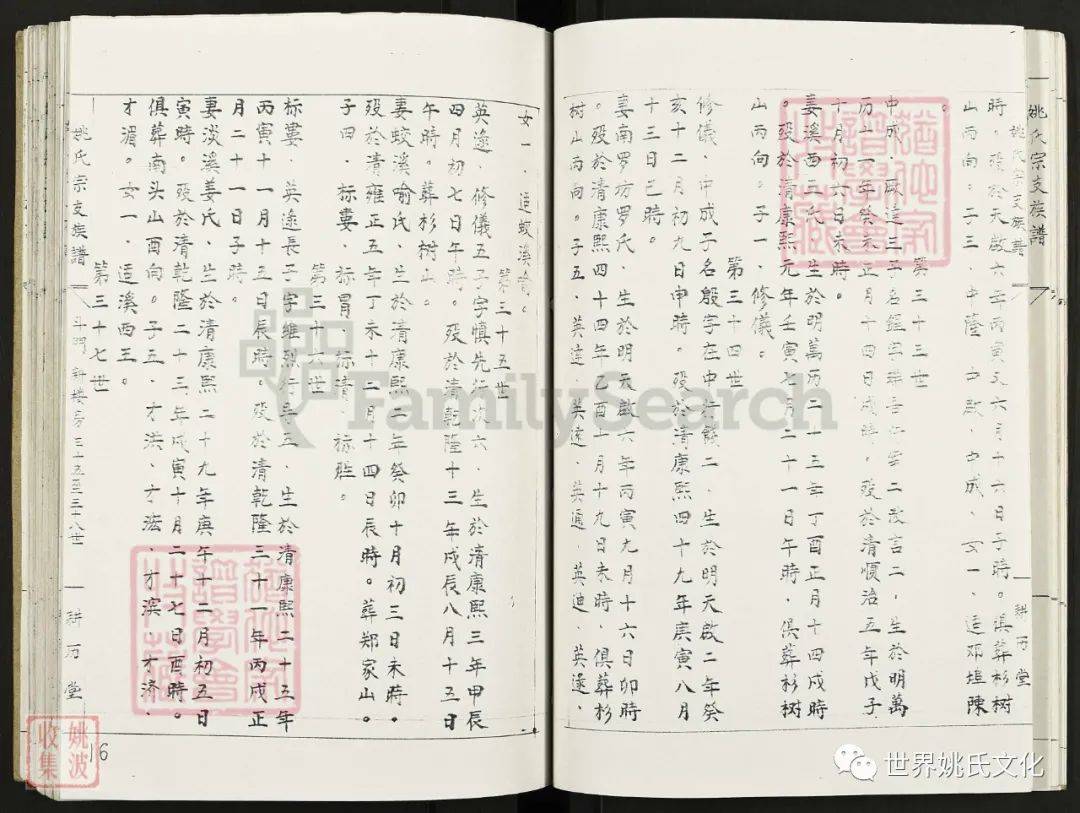 姚氏宗支族譜
耕历堂
時。殁於天啟六年丙寅又六月十六日子時。俱葬杉树
山丙向。子三.中隆.中啟.中成.女一.适邓埠陳
第三十三世
历十一年癸未正月十四日戌時。殁於清順治五年戊子
十月初六日未時。
妻溪西王氏.生於明萬历二十三年丁酉正月十四戌時
。殁於清康熙元年壬寅七月二十一日午時.俱葬杉树
山丙向。子一.修儀。
第三十四世
修儀.中成子名殷字在中行饒二.生於明天啟二年癸
亥十二月初九日申時。殁於清康熙四十九年庚寅八月
十三日巳時。
妻南罗坊罗氏.生於明天啟六年丙寅九月十六日卯時
。殁於清康熙四十四年乙酉十月十九日未時.俱葬杉
树山丙向。子五.英達.英遠.英通.英迪.英逵.
女一.适蛟溪喻。
第三十五世
英逵.修儀五子字慎先行汝六.生於清康熙三年甲辰
四月初七日午時。殁於清乾隆十三年戊辰八月十五日
午時。葬杉树山。
妻蛟溪喻氏.生於清康熙二年癸卯十月初三日未時。
殁於清雍正五年丁未十二月十四日辰時。葬郑家山。
子四.标萋.标胃.标清.标胜。
第三十六世
标萋.英逵長子字維烈行子五.生於清康熙二十五年
丙寅十一月十五日辰時。殁於清乾隆三十一年丙戌正
月二十一日子時。
妻淡溪姜氏.生於清康熙二十九年庚午十二月初五日
寅時。殁於清乾隆二十三年戊寅十月二十七日酉時。
俱葬南头山酉向。子五.才洪.才浤.才滨.才济.
才湄。女一.适溪西王。
第三十七世
姚氏宗支族譜
斗明 新楼房三十五至三十八世
耕历堂
16
姚波收集
FamilySearch
世界姚氏文化